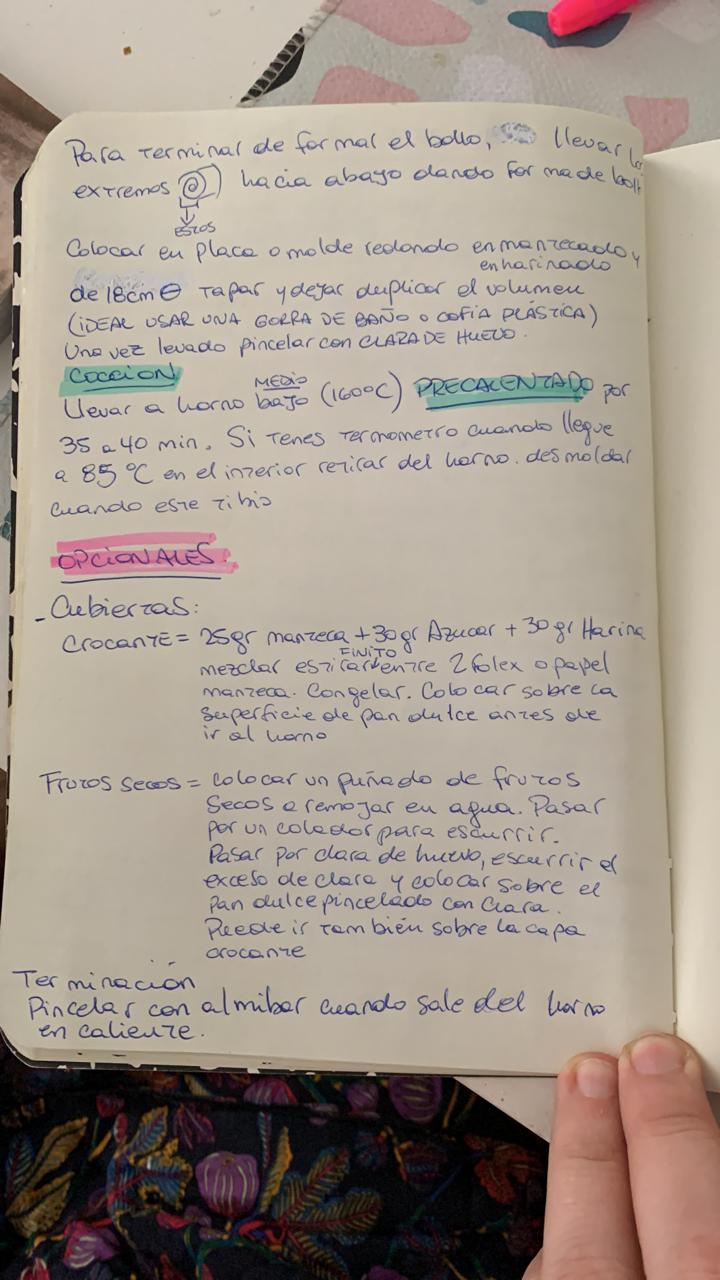 Para terminal de formal el bollo, llevar
extremos hacia abajo dando forma de
ESTOS
Colocar en placa o molde redondo enmantecado y
enharinado
de 18cm tapar y dejar duplicar el volumen
(IDEAL USAR UNA GORRA DE BAÑO O COFIA PLÁSTICA)
Una vez levado pincelar con CLARA DE HUEVO.
COCCION
MEDIO
Llevar a horno bajo (160°C) PRECALENTADO por
35 a 40 min. Si tenes termometro cuando llegue
a 85°C en el interior retirar del horno. desmoldar
cuando este tibio
OPCIONALES.
- Cubiertas:
Crocante = 25gr manteca + 30gr Azucar + 30gr Harina
FINITO
mezclar estirar entre 2 folex o papel
manteca. Congelar. Colocar sobre la
superficie de pan dulce antes de
ir al horno
Frutos secos = colocar un puñado de frutos
secos a remojar en agua. Pasar
por un colador para escurrir.
Pasar por clara de huevo, escurrir el
exceso de clara y colocar sobre el
pan dulce pincelado con clara.
Puede ir también sobre la capa
crocante
Terminación
Pincelar con almibar cuando sale del horno
en caliente.